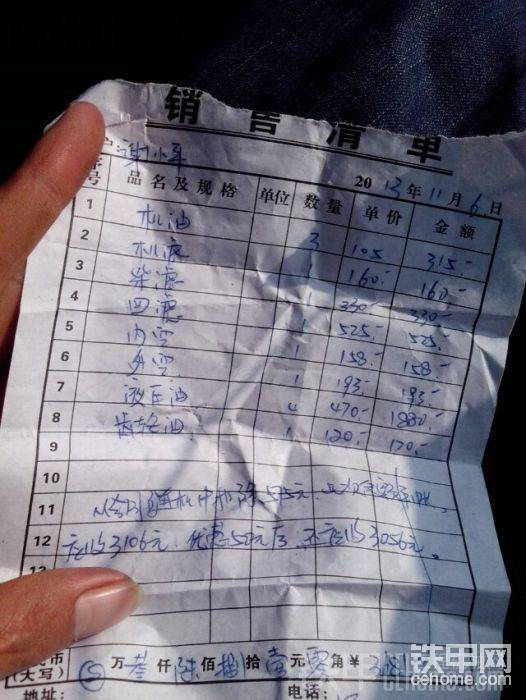 销售清单
户:谢小军 2013年11月6日
序号 品名及规格 单位 数量 单价 金额
1 机油 3 105 315.-
2 机滤 1 160.- 160.-
3 柴滤 1 330.- 330.-
4 回滤 1 525.- 525.-
5 内空 1 158.- 158.-
6 外空 1 193.- 193.-
7 液压油 4 470.- 1880.-
8 齿轮油 1 120.- 120.-
9
10
11 中扣除575元,
12 应收3106元,优惠50元后,还应收3056元。
13
币(大写) 万叁仟陆佰捌拾壹元零角¥
地址: 电话:
铁甲网